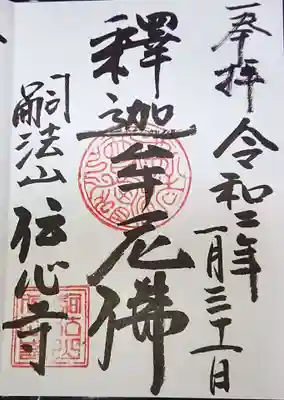 奉拝 令和二年一月三十一日
釋迦牟尼佛
嗣法山 伝心寺